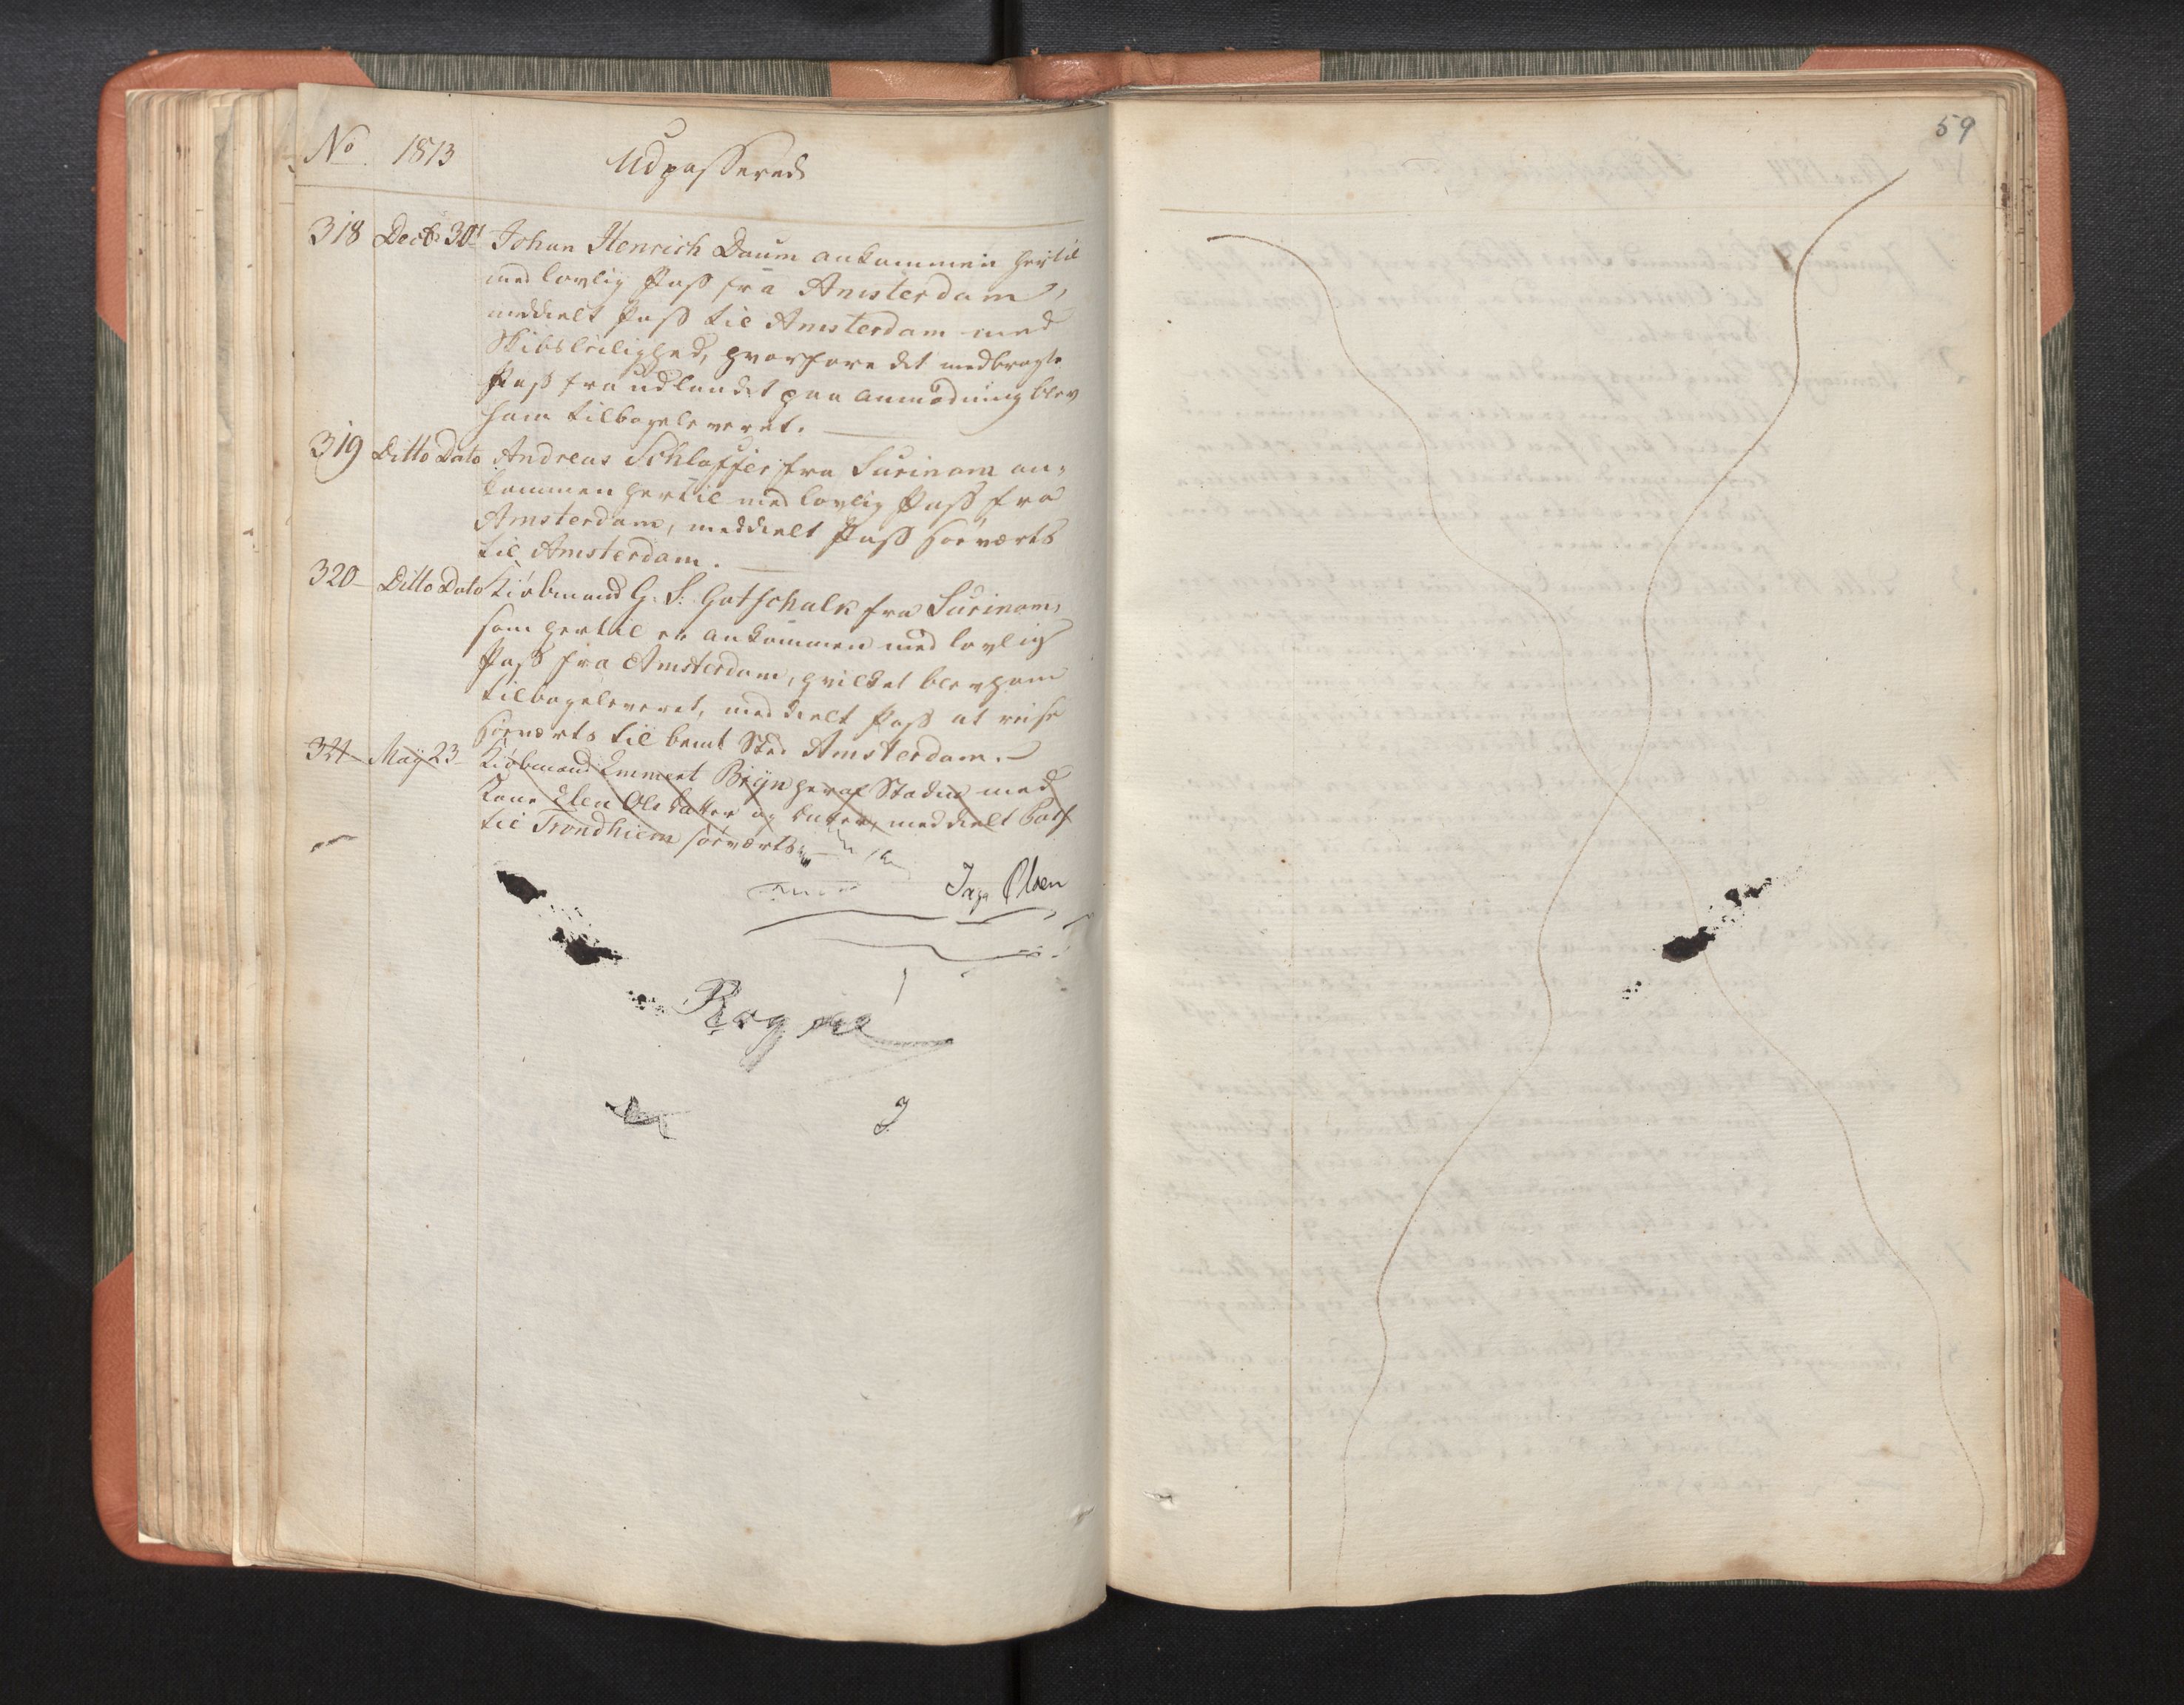 No 1813 Udpasserede
318 Decb 30t Johan Henrich Daum ankommen hertil
med lovlig Pass fra Amsterdam,
meddielt Pass til Amsterdam med
Skibsleilighed, hvorfore det medbragte
Pass fra udlandet paa anmodning blev
ham tilbageleveret. —
319 Ditto Dato Andreas Schlosser fra Surinam an-
kommen hertil med lovlig Pass fra
Amsterdam, meddielt Pass søeværts
til Amsterdam. —
320 Ditto Dato Kiøbmand G. S. Gotschalk fra Surinam,
som hertil er ankommen med lovlig
Pass fra Amsterdam, hvilket blev ham
tilbageleveret, meddielt Pass at reise
søeværts til bemt Sted Amsterdam. —
321 May 23 Kiøbmand Emmert Bryn heraf Staden med
Kone Elen Ols datter og meddielt Pass
til Trondhiem søeværts. —
Olsen
59